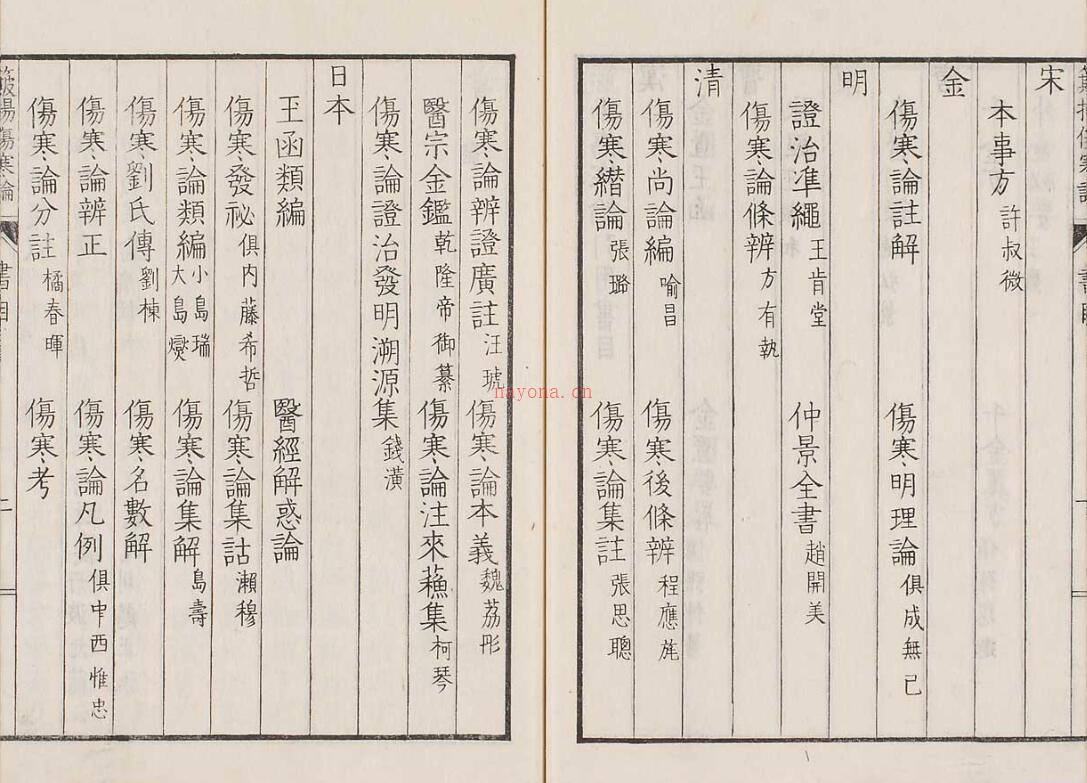 宋
本事方 許叔微
金
傷寒論註解 傷寒明理論 俱成無已
明
證治準繩 王肯堂 仲景全書 趙開美
傷寒論條辨 方有執
清
傷寒尚論編 喻昌 傷寒後條辨 程應旄
傷寒纘論 張璐 傷寒論集註 張思聰
傷寒論辨證廣註 汪琥 傷寒論本義 魏荔彤
醫宗金鑑 乾隆帝御纂 傷寒論注來蘓集 柯琴
傷寒論證治發明溯源集 錢潢
日本
王函類編 醫經解惑論
傷寒發祕 俱內藤希哲 傷寒論集詁 瀨穆
傷寒論類編 小島瑞 大島爕 傷寒論集解 島壽
傷寒劉氏傳 劉棟 傷寒名數解
傷寒論辨正 傷寒論凡例 俱中西惟忠
傷寒論分註 橘春暉 傷寒考
傷寒論 書目 二
nayona.cn